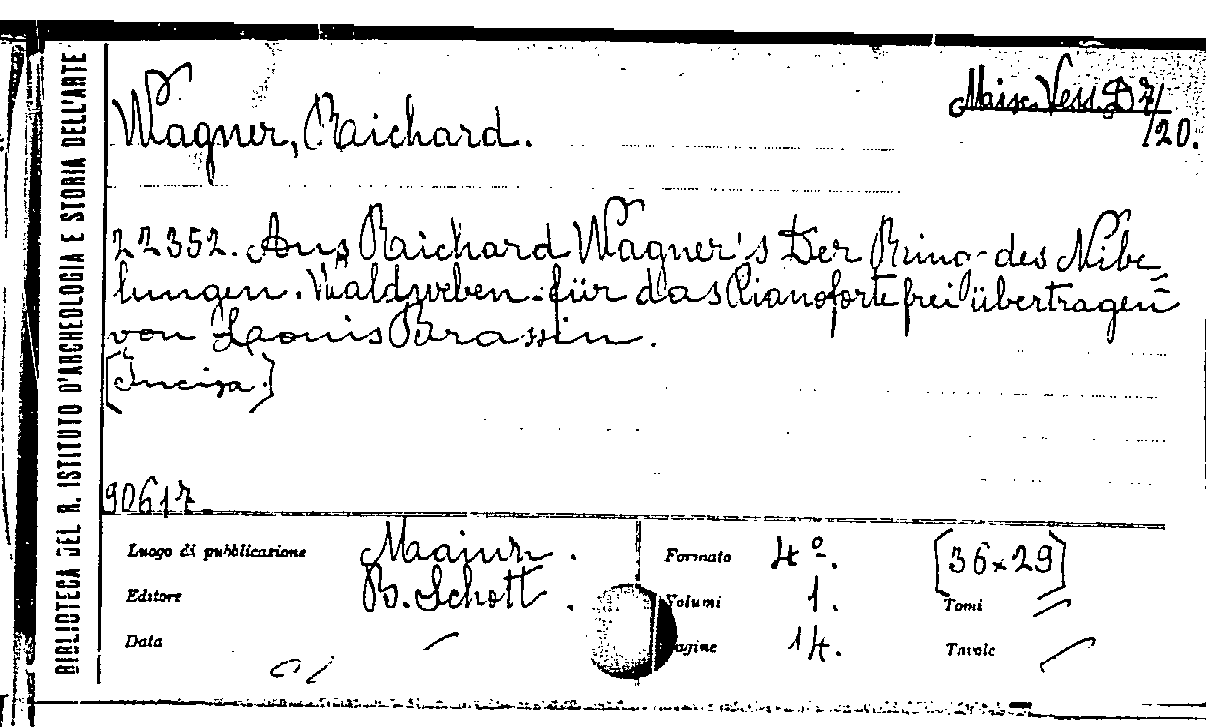 BIBLIOTECA DEL R. ISTITUTO D'ARCHEOLOGIA E STORIA DELL'ARTE
Wagner, Raichard.
Mus. Vess. D7/
/20.
22352. Aus Raichard Wagner's Der Ring des Nibe=
lungen. Waldweben für das Pianoforte frei übertragen
von Louis Brassin.
[Incisa.]
90617.
Luogo di pubblicazione Maainz.
Editore B. Schott.
Data
Formato 4º. [36×29]
Volumi 1. Tomi
Pagine 14. Tavole